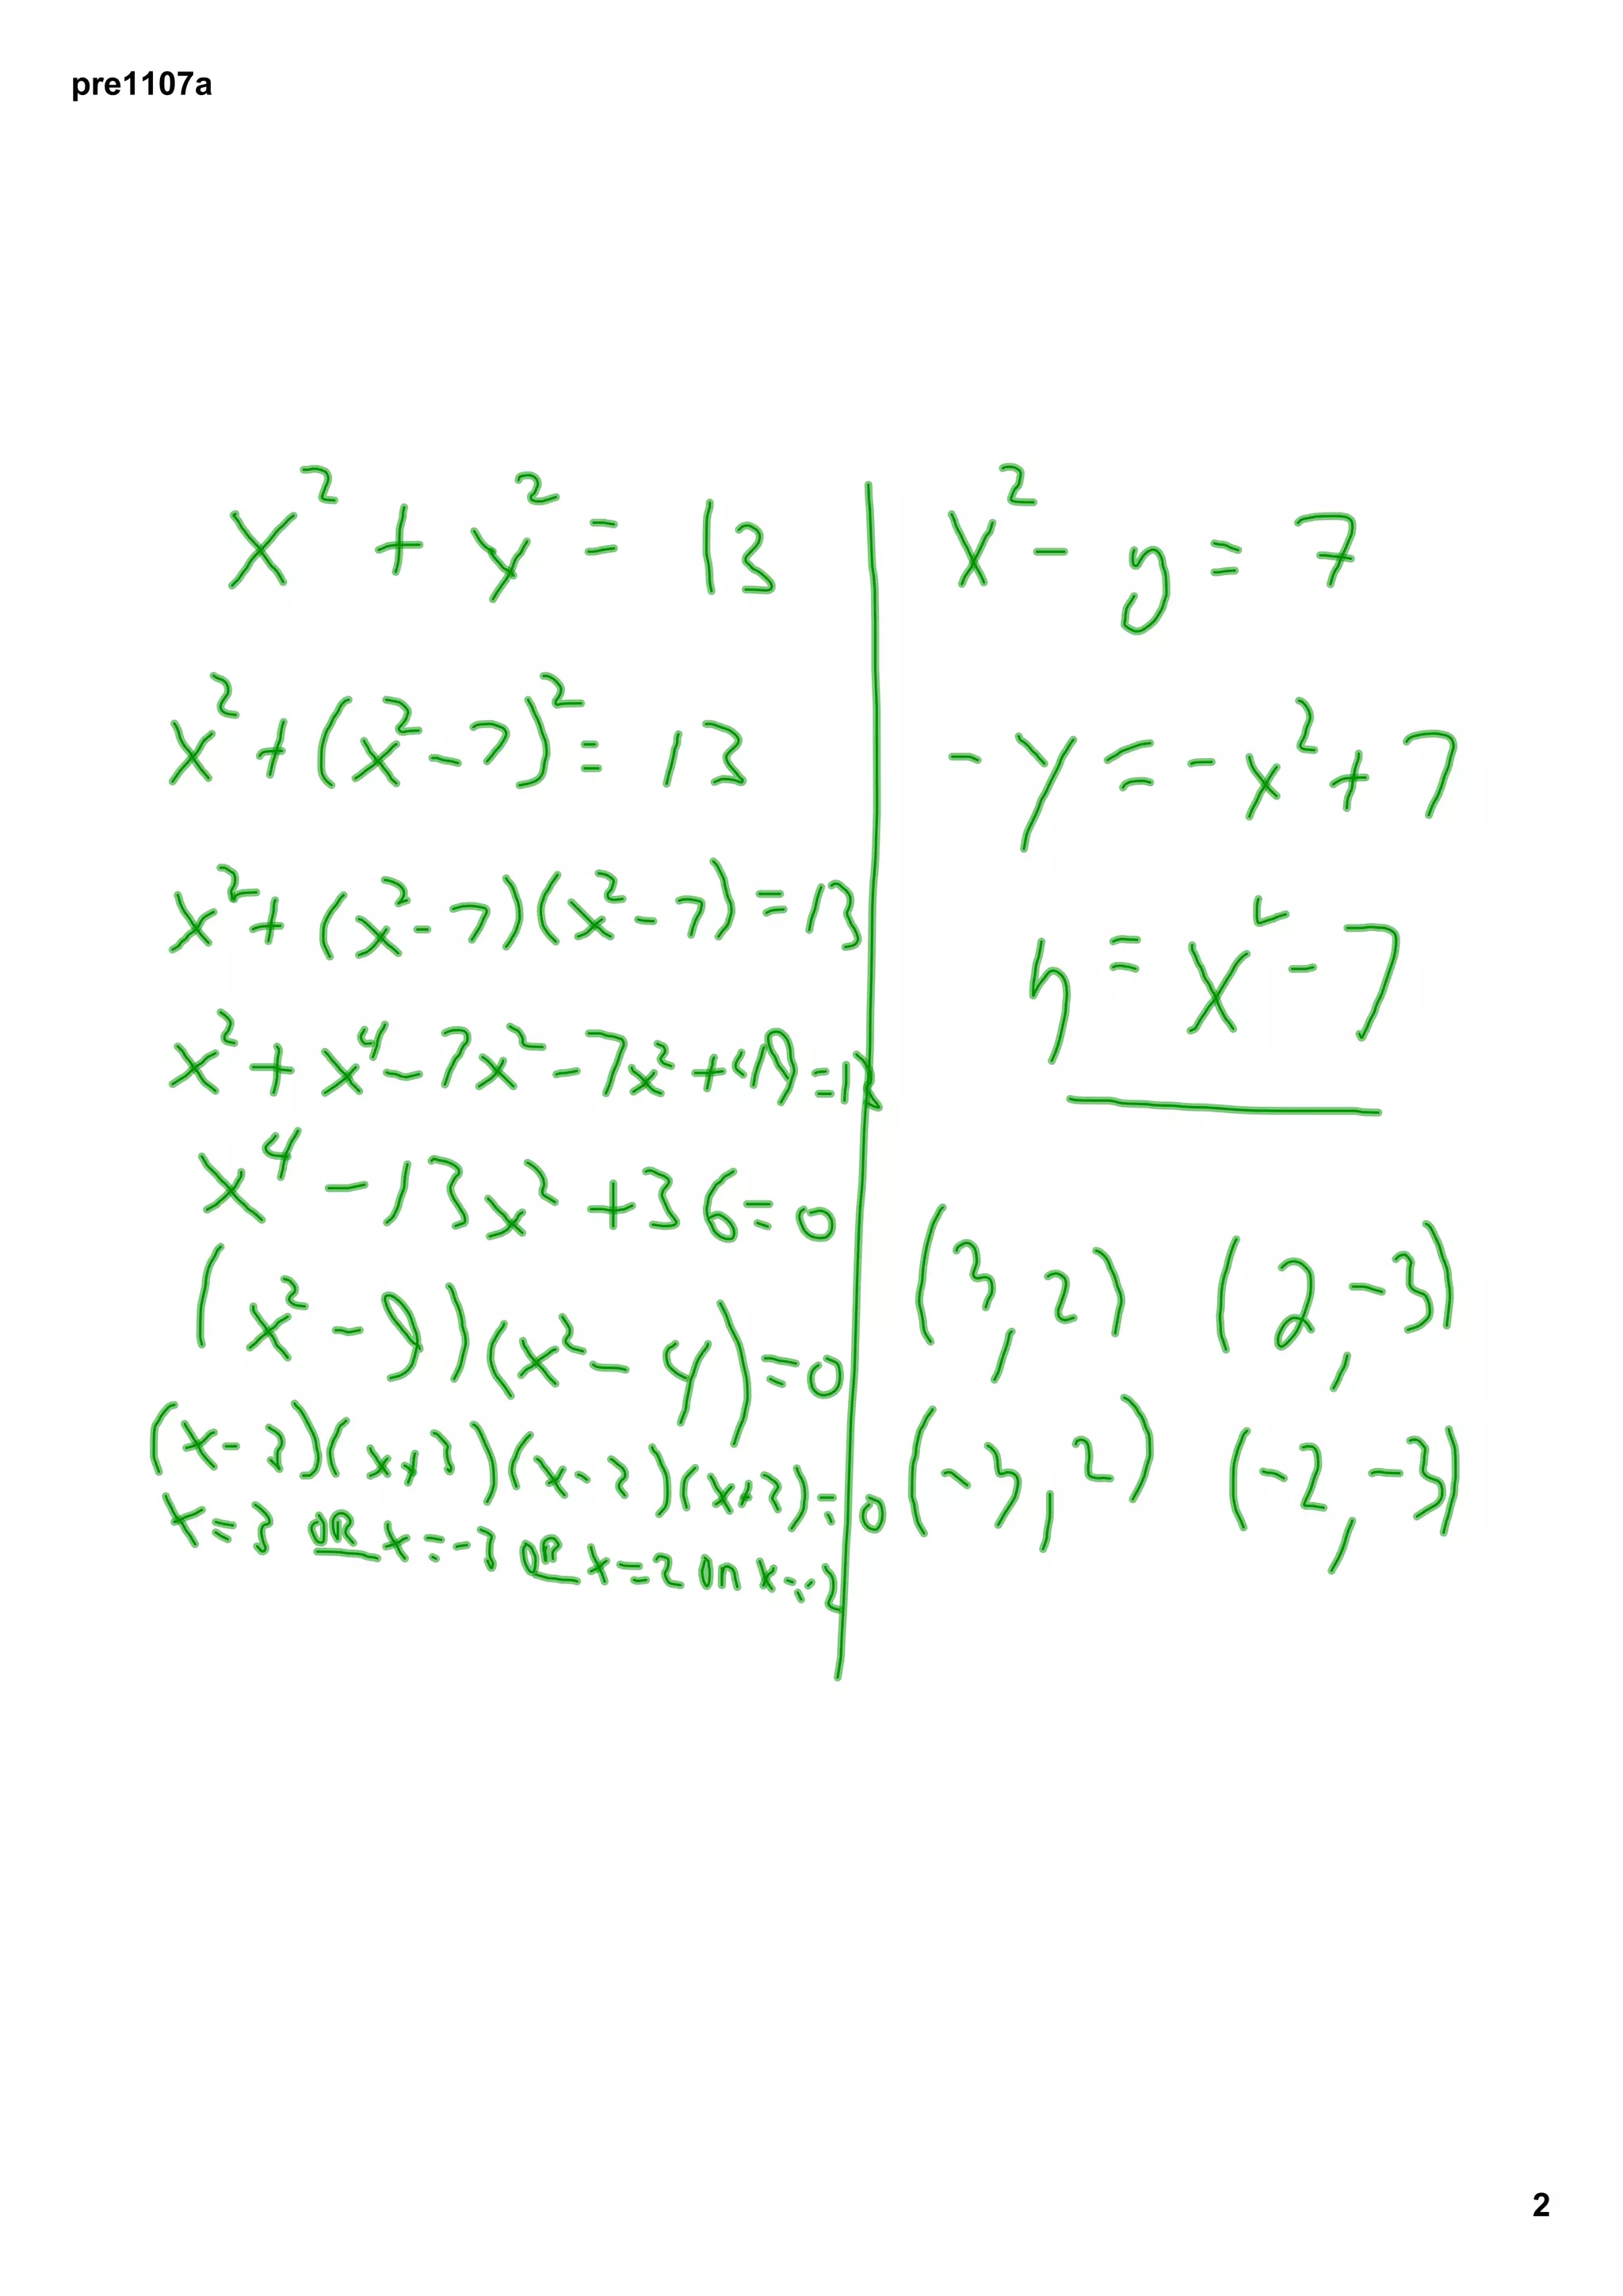 pre1107a
x² + y² = 13
x² + (x² - 7)² = 13
x² + (x² - 7)(x² - 7) = 13
x² + x⁴ - 7x² - 7x² + 49 = 13
x⁴ - 13x² + 36 = 0
(x² - 9)(x² - 4) = 0
(x - 3)(x + 3)(x - 2)(x + 2) = 0
x = 3 OR x = -3 OR x = 2 OR x = -2
x² - y = 7
-y = -x² + 7
y = x² - 7
(3, 2) (2, -3)
(-3, 2) (-2, -3)
2